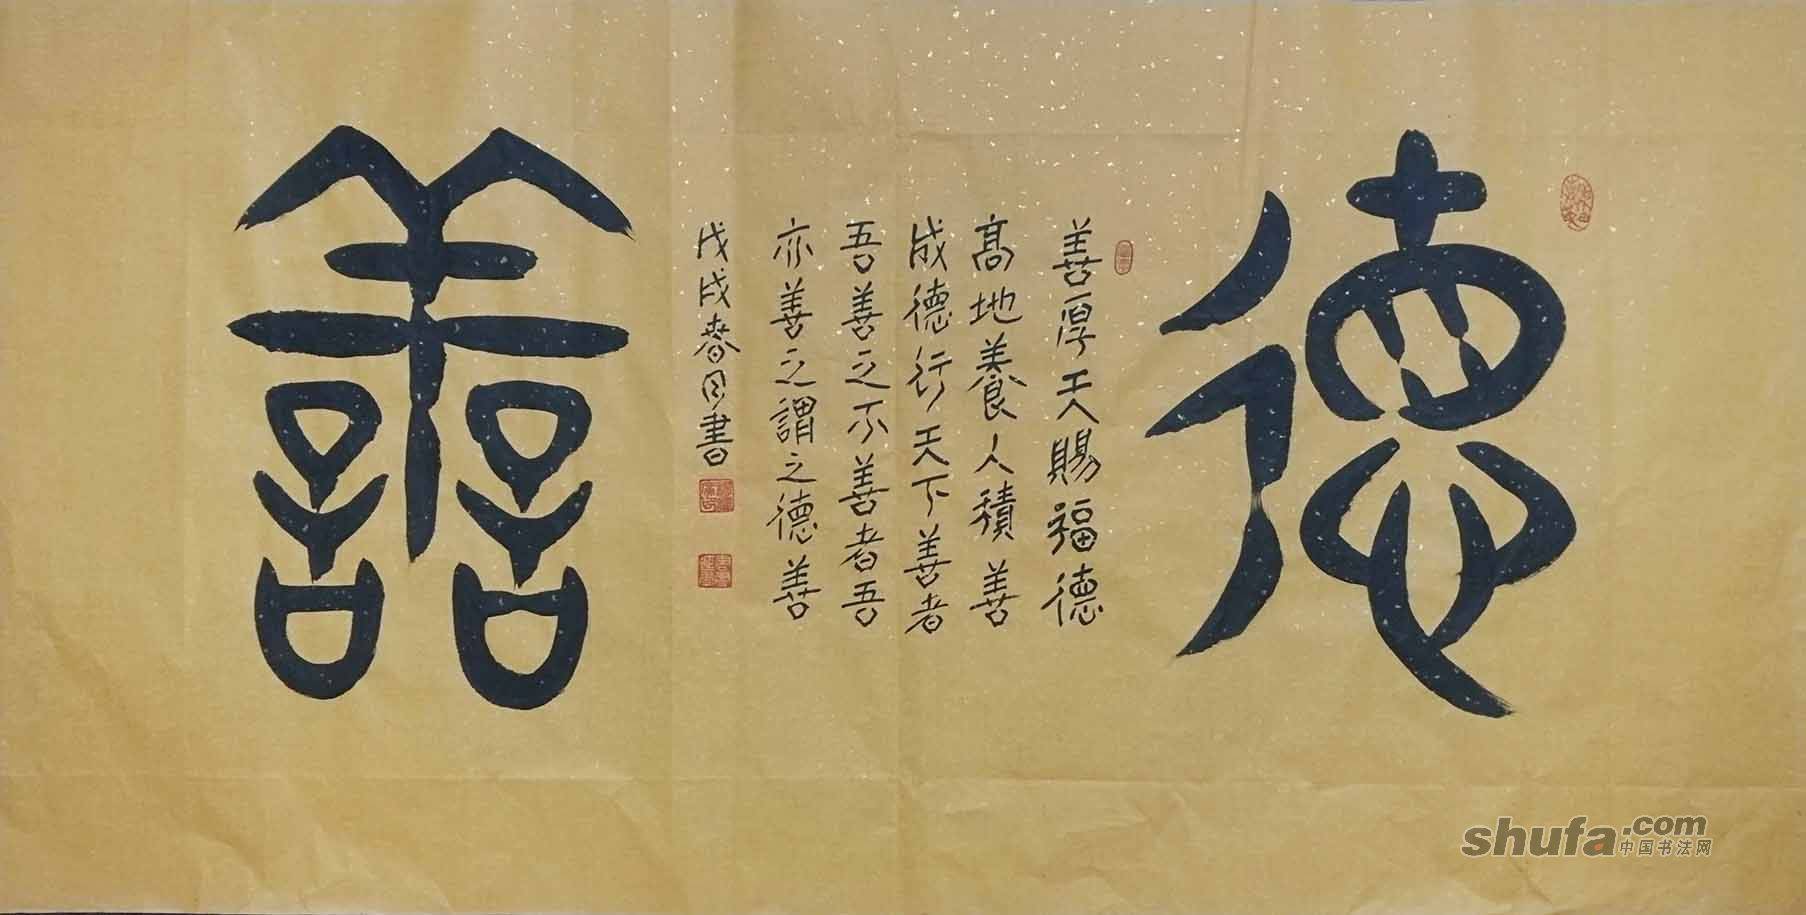 德
善厚天賜福德
髙地養人積善
成德行天下善者
吾善之不善者吾
亦善之謂之德善
戊戌春月書
善
shufa.com
中国书法网